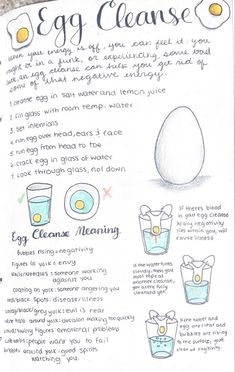 Egg Cleanse
When your energy is off, you can feel it. you
might be in a funk, or experiencing some bad
an egg cleanse can help you get rid of
some of that negative energy.
1. cleanse egg in salt water and lemon juice
2. fill glass with room temp. water
3. set intentions
4. run egg over head, ears & face
5. run egg from head to toe
6. crack egg in glass of water
7. Look through glass, not down
Egg Cleanse Meaning
Bubbles rising = negativity
Figures in yolk = envy
Nails/needles = someone working
against you
coating on yolk = someone angering you
red/black spots: disease/illness
cloudy/black/grey yolk: evil is near
decision making too quickly
figures: emotional problems
cobwebs: people want you to fail
bubbles around yolk: good spirits
watching you.
If theres blood
in your egg cleanse
negativity
lies within you, will
cause illness
If the water turns
cloudy, then you
must repeat
another cleanse,
you arent fully
cleansed yet
If the water and
egg are clear and
bubbles are rising
to the surface, your
clear of negativity.